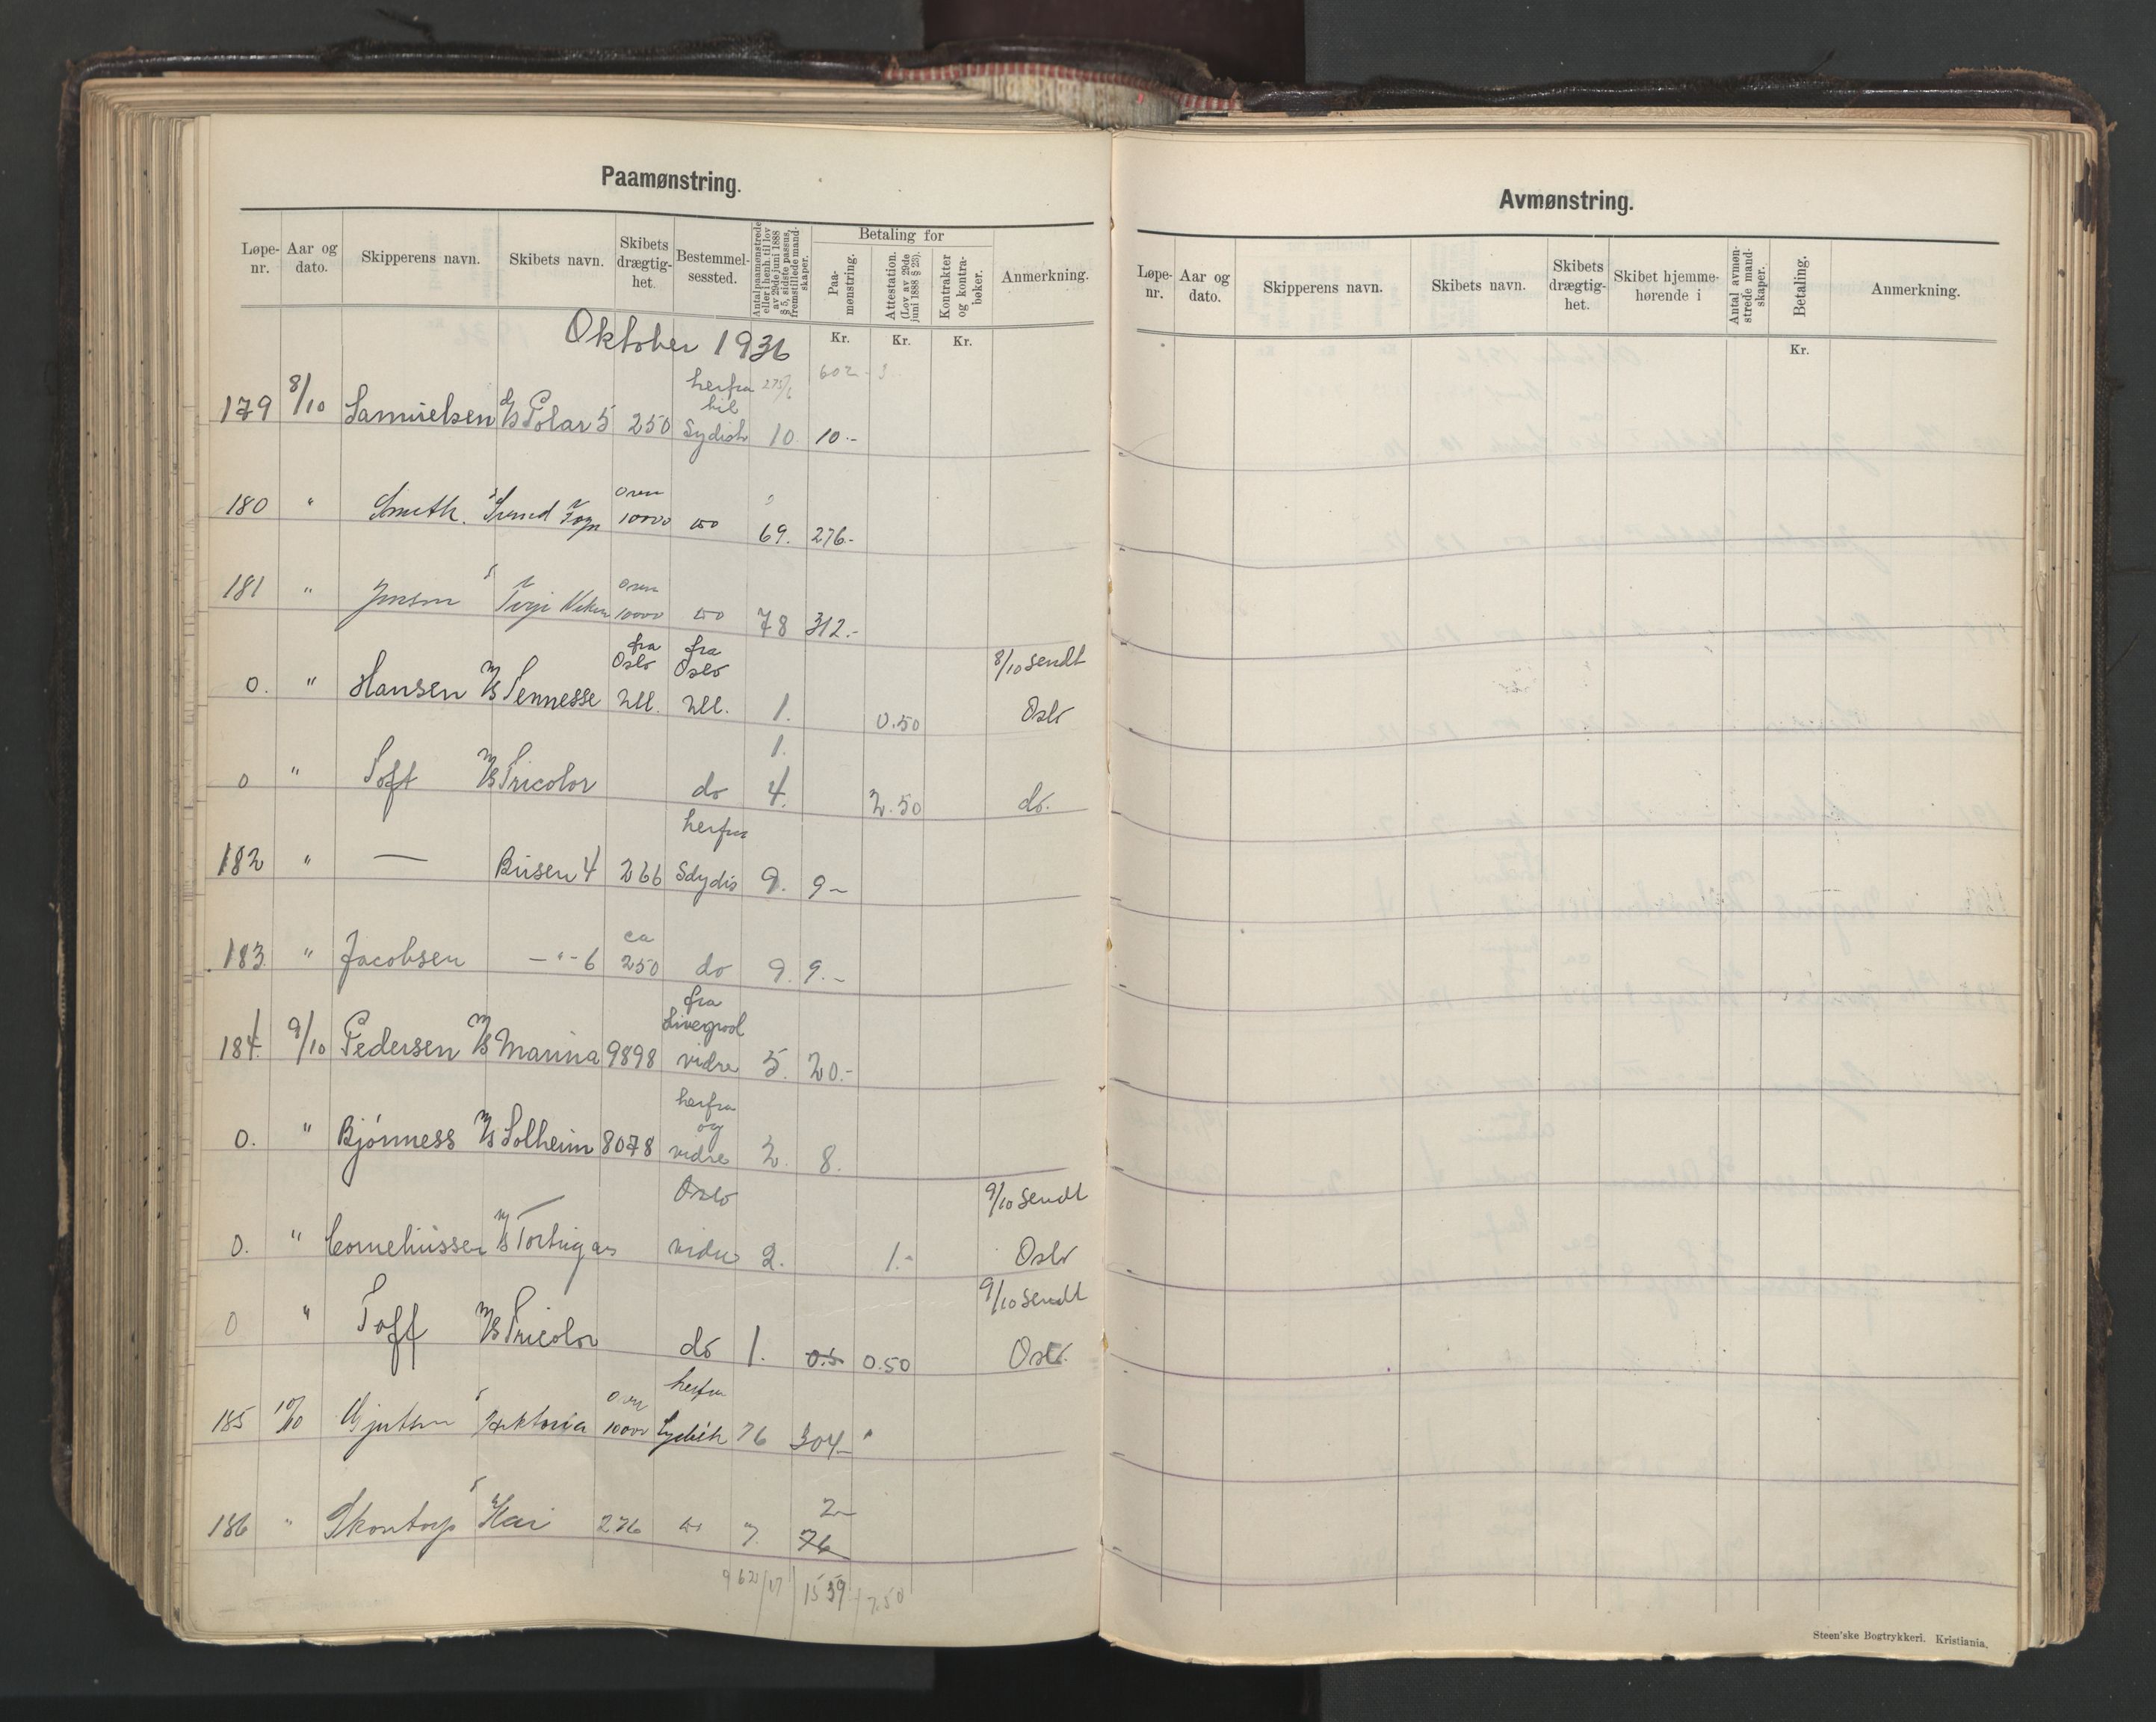 Paamønstring.
Løpe-nr. Aar og dato. Skipperens navn. Skibets navn. Skibets drægtig-het. Bestemmel-sessted. Antal paamønstrede eller i henh. til lov av 29de juni 1888 § 5, sidste passus, fremstillede mand-skaper. Betaling for Paa-mønstring. Attestation. (Lov av 29de juni 1888 § 28). Kontrakter og kontra-bøker. Anmerkning.
Oktober 1936 Kr. Kr. Kr.
herfra
til
179 8/10 Samuelsen d/s Polar 5 250 Sydish 10 10.-
Over
180 " Smith. Svend Foyn 10000 do 69. 276.-
Over
181 " Jensen Torje Viken 10000 do 78 312.-
fra Oslo fra Oslo 8/10 sendt
0. " Hansen M/s Tennesse 2ll. 2ll. 1. 0.50 Oslo
1.
0 " Toft M/s Tricolor do 4. 2.50 do.
herfra
182 " — Busen 4 266 Sdydis 9. 9-
ca
183. " Jacobsen - " - 6 250 do 9. 9.-
fra
Liverpool
184. 9/10 Pedersen M/s Marina 9898 vidre 5. 20.-
herfra
og
0. " Bjónness M/s Solheim 8078 vidre 2. 8.
Oslo 9/10 sendt
0. " Corneliussen M/s Tortugas vidre 2. 1.- Oslo
9/10 sendt
0 " Toff M/s Tricolor do 1. 0.5 0.50 Oslo.
herfra
Over
185 10/10 Gjertsen s Vektoria 1000 Sydish 76 304-
2-
186 " Skontorp s Kai 276 do 7. 76
962/17 1539 7.50
Avmønstring.
Løpe-nr. Aar og dato. Skipperens navn. Skibets navn. Skibets drægtig-het. Skibet hjemme-hørende i Antal avmøn-strede mand-skaper. Betaling. Anmerkning.
Kr.
Steen'ske Bogtrykkeri. Kristiania.